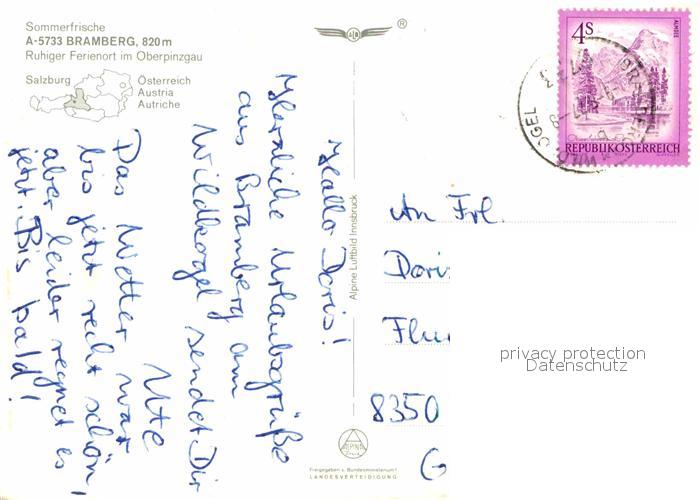 Sommerfrische
A-5733 BRAMBERG, 820m
Ruhiger Ferienort im Oberpinzgau
Salzburg
Österreich
Austria
Autriche
Hallo Doris!
Herzliche Urlaubsgrüße
aus Bramberg am
Wildkogel sendet Dir
Ute
Das Wetter war
bis jetzt recht schön,
aber leider regnet es
jetzt. Bis bald!
Alpine Luftbild Innsbruck
ALPINE
Freigegeben v. Bundesministerium f.
LANDESVERTEIDIGUNG
4S
ALMSEE
REPUBLIK ÖSTERREICH
An Frl.
Doris
Flu
8350
G
privacy protection
Datenschutz